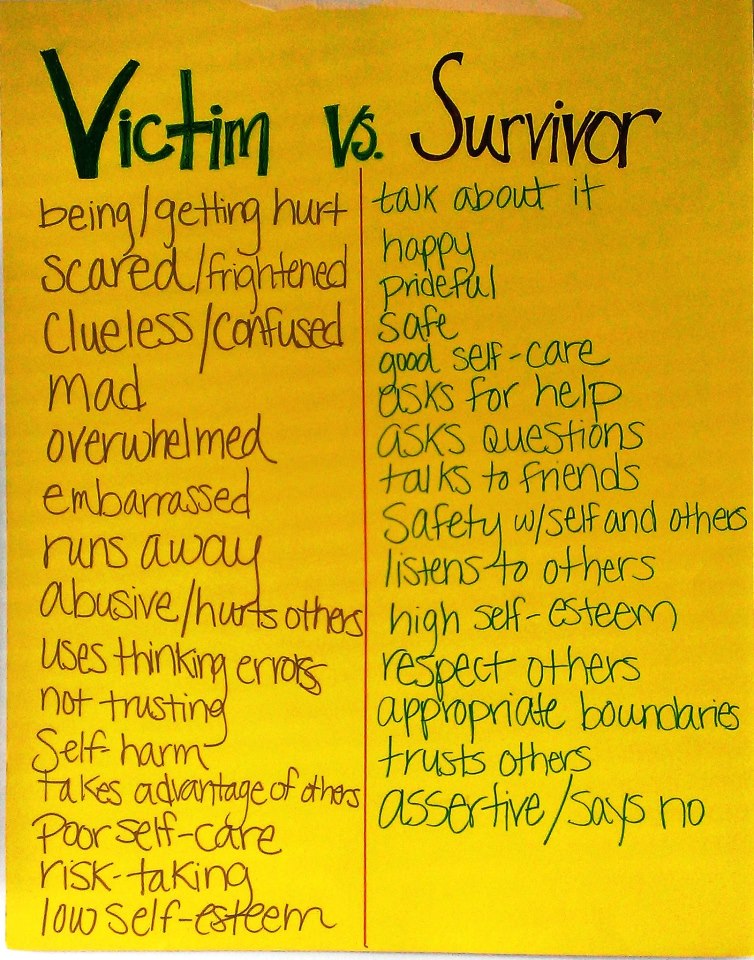 Victim vs. Survivor
being/getting hurt
scared/frightened
Clueless/confused
mad
overwhelmed
embarrassed
runs away
abusive/hurts others
uses thinking errors
not trusting
Self-harm
takes advantage of others
Poor self-care
risk-taking
low self-esteem
talk about it
happy
prideful
safe
good self-care
asks for help
asks questions
talks to friends
Safety w/self and others
listens to others
high self-esteem
respect others
appropriate boundaries
trusts others
assertive/says no